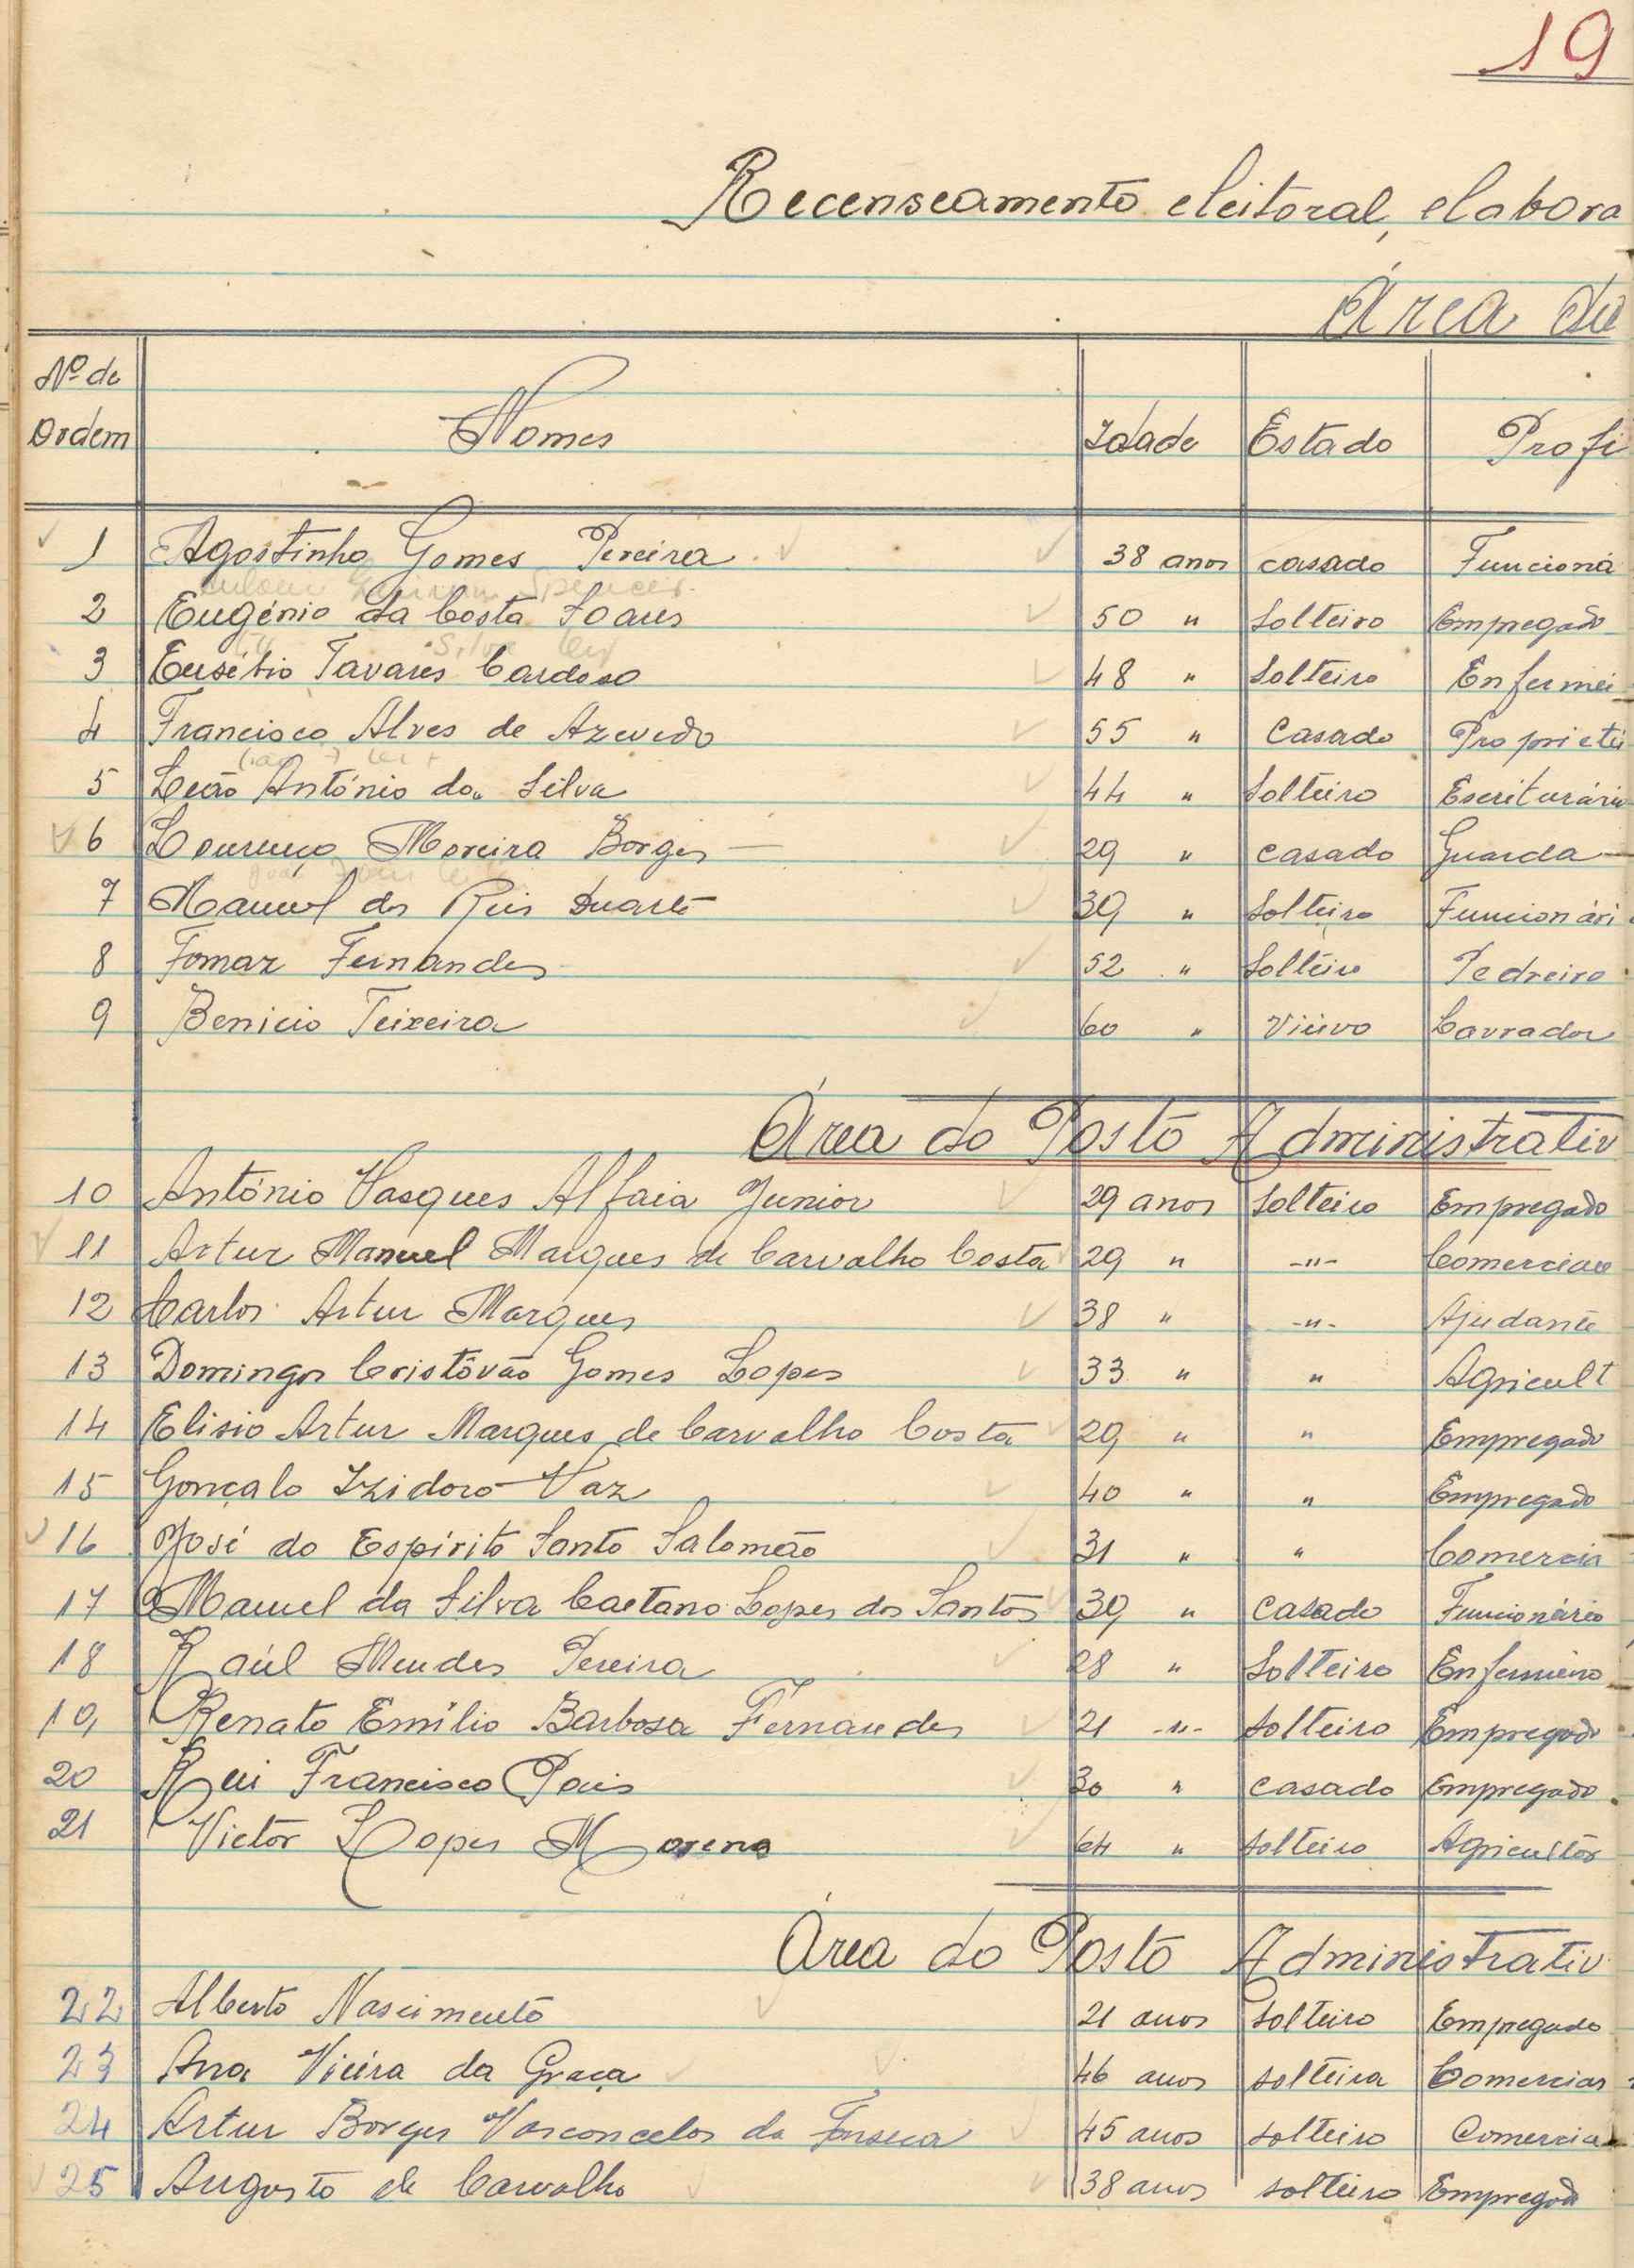 19
Recenseamento eleitoral, elabora
Área du
Nº de Ordem Nomes Idade Estado Profi
1 Agostinho Gomes Pereira 38 anos casado Funcioná
2 Eugénio da Costa Soares 50 " Solteiro Empregado
3 Eusébio Tavares Cardoso 48 " Solteiro Enfermei
4 Francisco Alves de Azevedo 55 " Casado Proprietá
5 Leão António da Silva 44 " Solteiro Escriturário
6 Lourenço Moreira Borges 29 " casado Guarda
7 Manuel dos Reis Duarte 39 " Solteiro Funcionári
8 Tomaz Fernandes 52 " Solteiro Pedreiro
9 Benicio Teixeira 60 " Viúvo Lavrador
Área do Posto Administrativ
10 António Vasques Alfaia Junior 29 anos Solteiro Empregado
11 Artur Manuel Marques de Carvalho Costa 29 " -"- Comercian
12 Carlos Artur Marques 38 " -"- Ajudante
13 Domingos Cristóvão Gomes Lopes 33 " " Agricult
14 Elisio Artur Marques de Carvalho Costa 29 " " Empregado
15 Gonçalo Izidoro Vaz 40 " " Empregado
16 José do Espírito Santo Salomão 31 " " Comercia
17 Manuel da Silva Caetano Lopes dos Santos 39 " Casado Funcionário
18 Raúl Mendes Pereira 28 " Solteiro Enfermeiro
19 Renato Emílio Barbosa Fernandes 21 -"- Solteiro Empregado
20 Rui Francisco Pais 30 " casado Empregado
21 Victor Lopes Moreno 64 " solteiro Agricultor
Área do Posto Administrativ
22 Alberto Nascimento 21 anos Solteiro Empregado
23 Ana Vieira da Graça 46 anos solteira Comercian
24 Artur Borges Vasconcelos da Fonseca 45 anos solteiro Comercia
25 Augusto de Carvalho 38 anos solteiro Empregado